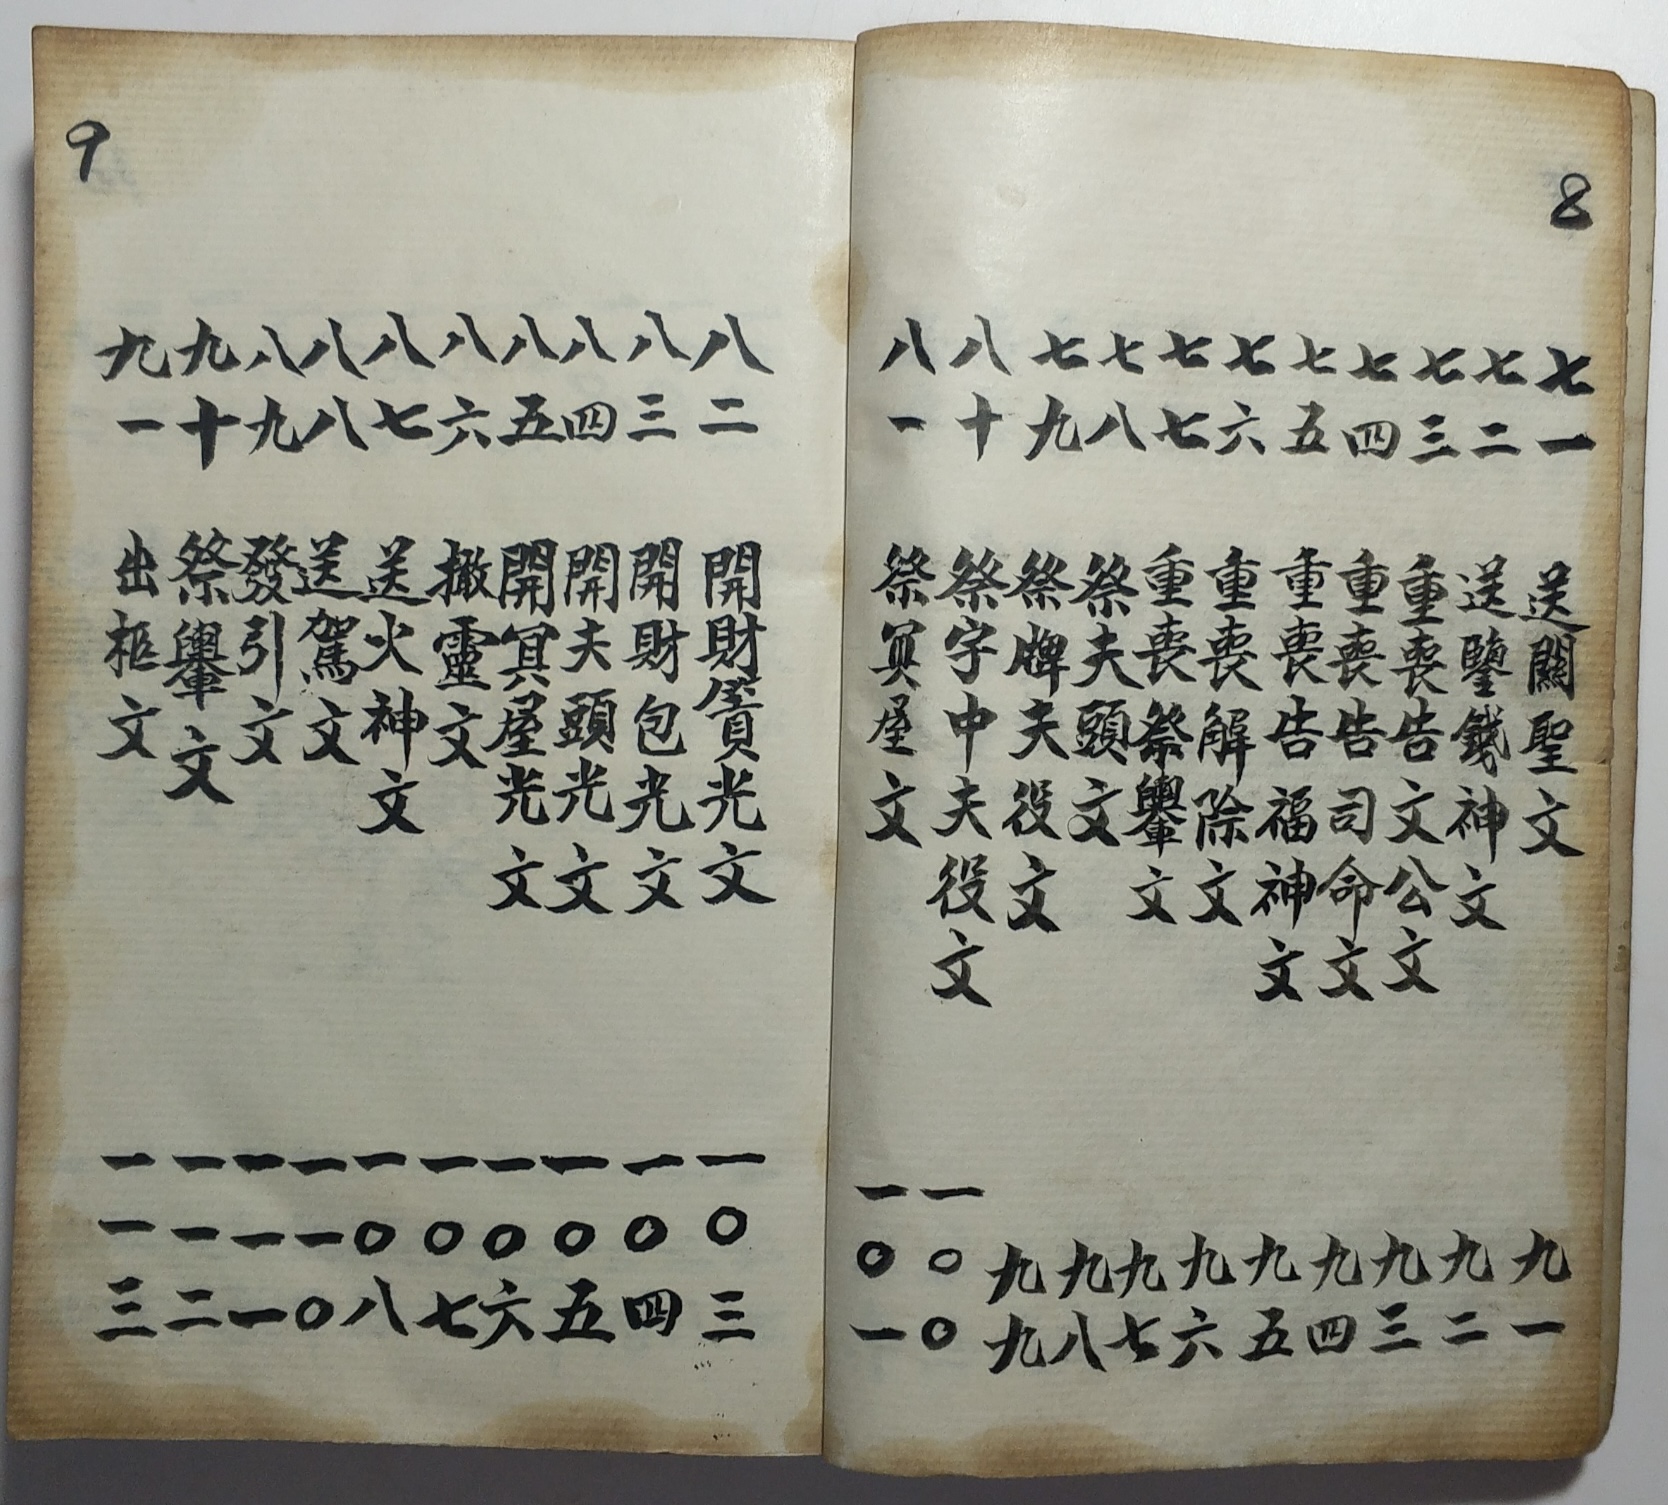 8
七一 送關聖文 九一
七二 送鑒錢神文 九二
七三 重喪告文公文 九三
七四 重喪告司命文 九四
七五 重喪告福神文 九五
七六 重喪解除文 九六
七七 重喪祭轝文 九七
七八 祭夫頭文 九八
七九 祭牌夫役文 九九
八十 祭字中夫役文 一〇〇
八一 祭冥屋文 一〇一
9
八二 開財簣光文 一〇三
八三 開財包光文 一〇四
八四 開夫頭光文 一〇五
八五 開冥屋光文 一〇六
八六 撤靈文 一〇七
八七 送火神文 一〇八
八八 送駕文 一一〇
八九 發引文 一一一
九十 祭轝文 一一二
九一 出柩文 一一三